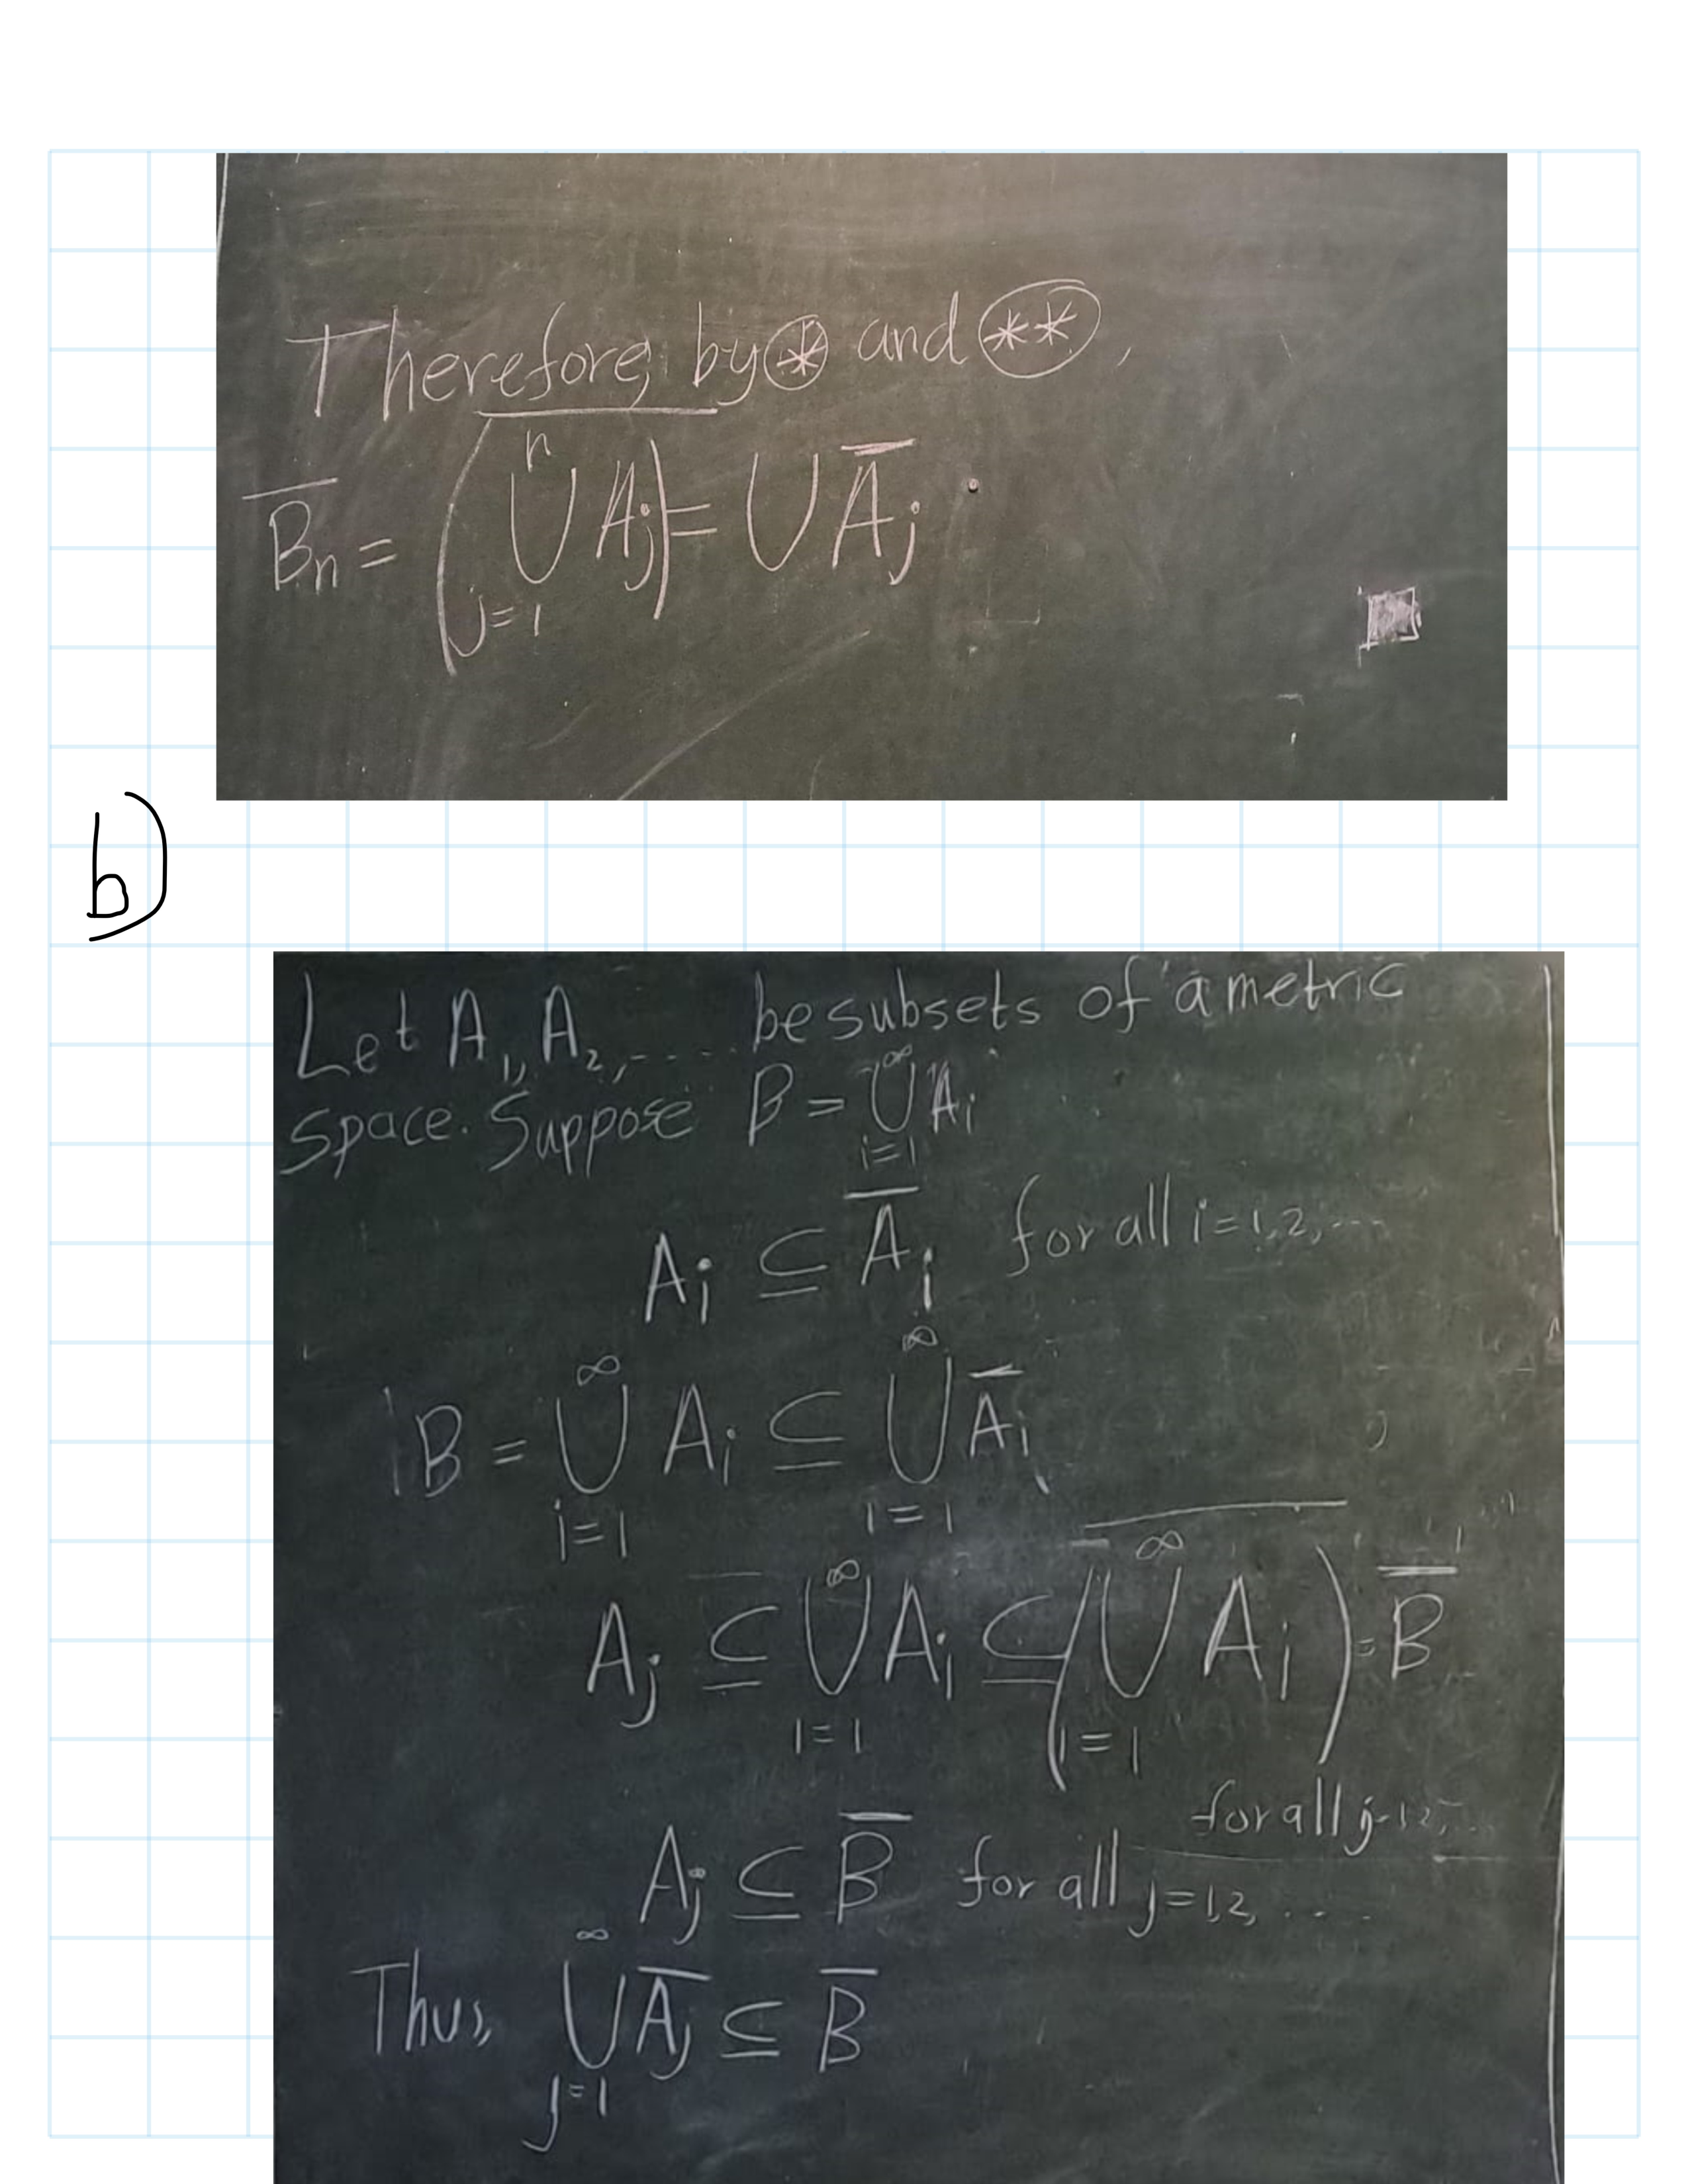 Therefore, by ⊛ and (**),
$\overline{B_n} = \overline{\left(\bigcup_{j=1}^{n} A_j\right)} = \bigcup \overline{A_j}$.
b)
Let A₁, A₂, .... be subsets of a metric
space. Suppose $B = \bigcup_{i=1}^{\infty} A_i$
$A_i \subseteq \overline{A_i}$ for all i = 1, 2, ...
$B = \bigcup_{i=1}^{\infty} A_i \subseteq \bigcup_{i=1}^{\infty} \overline{A_i}$
$A_j \subseteq \bigcup_{i=1}^{\infty} A_i \subseteq \overline{\left(\bigcup_{i=1}^{\infty} A_i\right)} = \overline{B}$
for all j = 1, 2, ...
$A_j \subseteq \overline{B}$ for all j = 1, 2, ....
Thus, $\bigcup_{j=1}^{\infty} \overline{A_j} \subseteq \overline{B}$